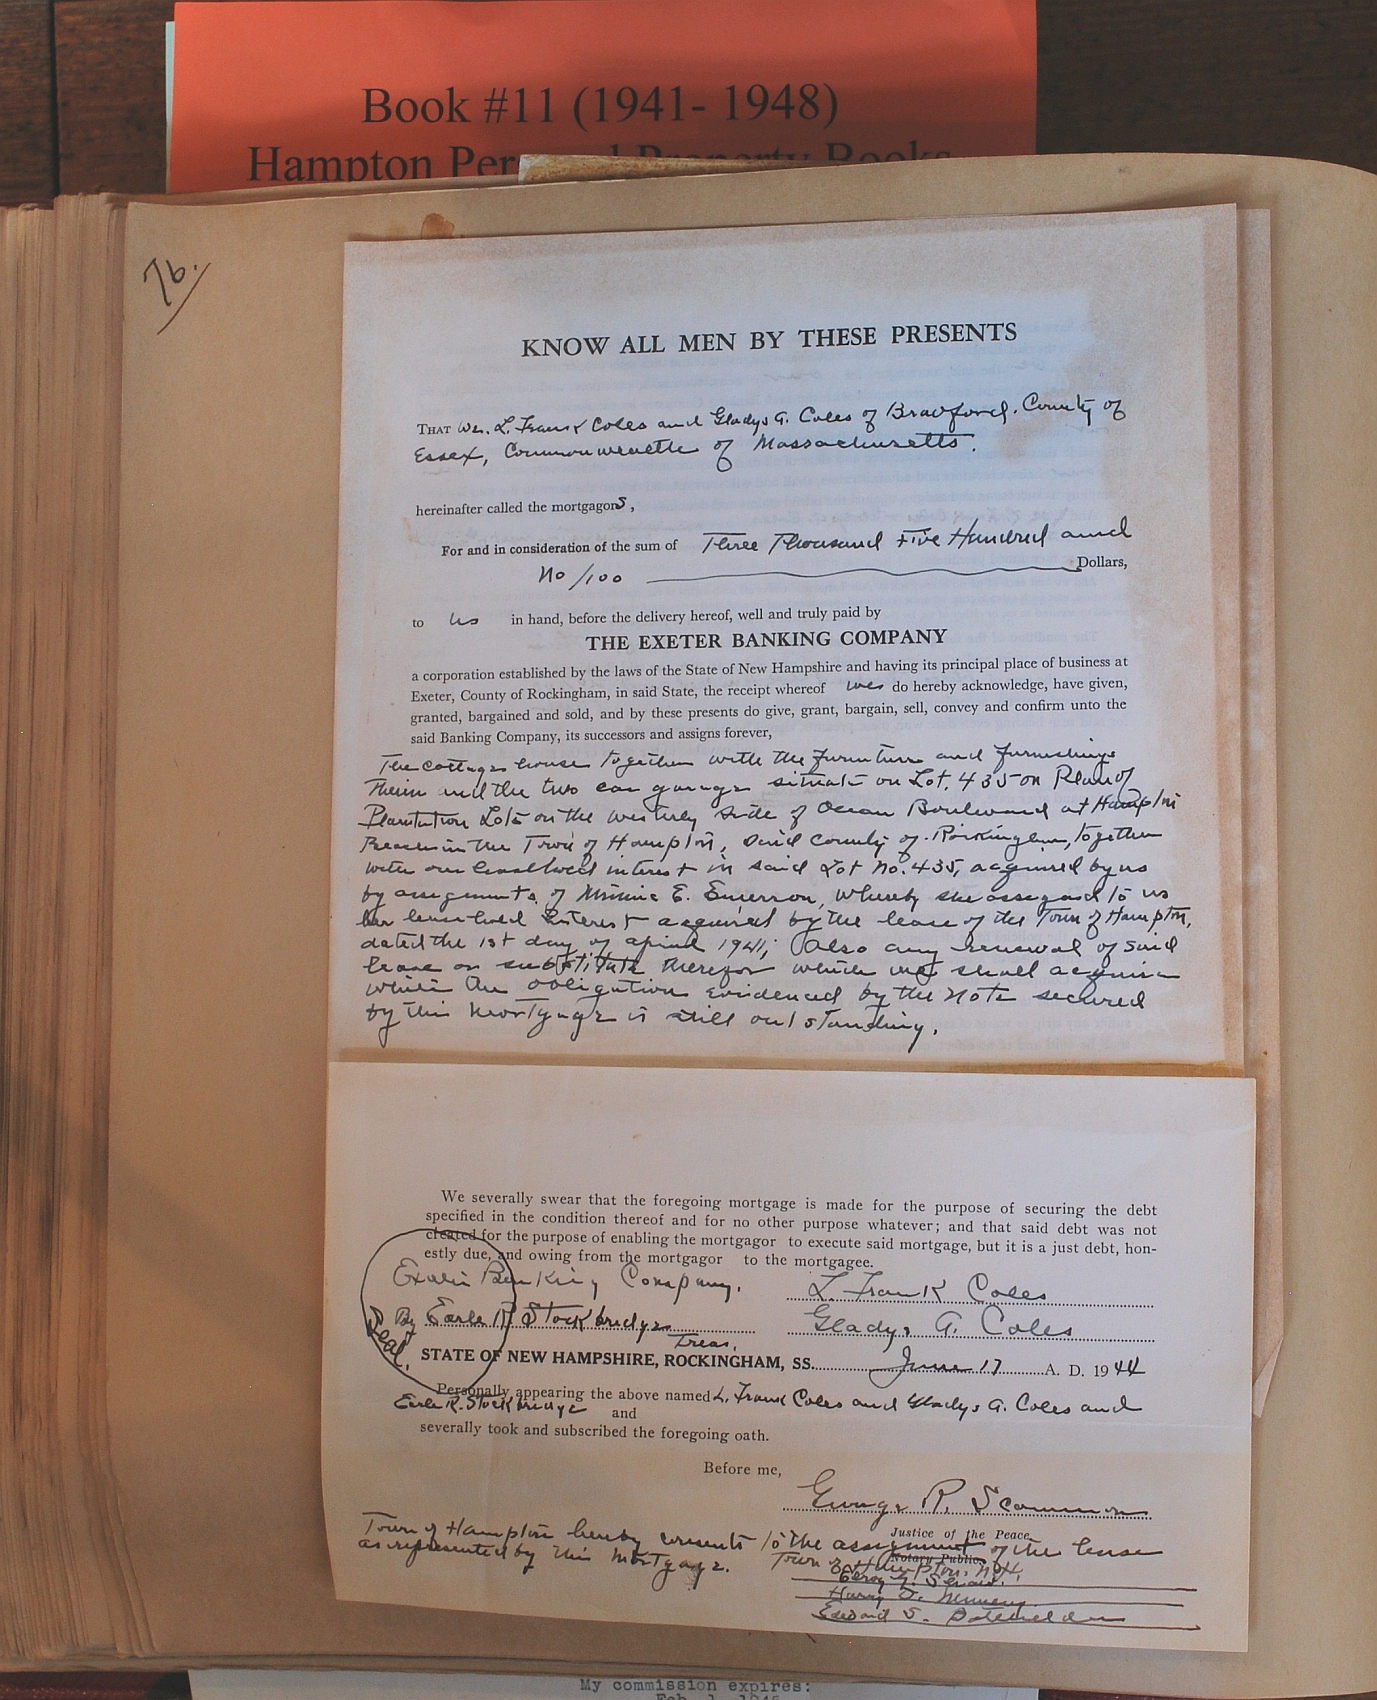 Book #11 (1941- 1948)
Hampton Personal Property Books
76.
KNOW ALL MEN BY THESE PRESENTS
THAT We. L. Frank Coles and Gladys A. Coles of Bradford. County of
Essex, Commonwealth of Massachusetts.
hereinafter called the mortgagors,
For and in consideration of the sum of Three Thousand Five Hundred and
no/100 Dollars,
to us in hand, before the delivery hereof, well and truly paid by
THE EXETER BANKING COMPANY
a corporation established by the laws of the State of New Hampshire and having its principal place of business at
Exeter, County of Rockingham, in said State, the receipt whereof we do hereby acknowledge, have given,
granted, bargained and sold, and by these presents do give, grant, bargain, sell, convey and confirm unto the
said Banking Company, its successors and assigns forever,
The cottage house together with the furniture and furnishings
therein and the two car garage situate on Lot. 435 on Plan of
Plantation Lots on the westerly side of Ocean Boulevard at Hampton
Beach in the Town of Hampton, said county of Rockingham, together
with our leasehold interest in said Lot No. 435, acquired by us
by assignment of Minnie E. Emerson, whereby she assigned to us
her leasehold interest acquired by the lease of the Town of Hampton,
dated the 1st day of April 1941; Also any renewal of said
lease or substitute therefor which we shall acquire
while the obligation evidenced by the Note secured
by this mortgage is still outstanding.
We severally swear that the foregoing mortgage is made for the purpose of securing the debt
specified in the condition thereof and for no other purpose whatever; and that said debt was not
created for the purpose of enabling the mortgagor to execute said mortgage, but it is a just debt, hon-
estly due, and owing from the mortgagor to the mortgagee.
Exeter Banking Company. L. Frank Coles
By Earle R. Stockbridge Gladys A. Coles
Treas.
Seal.
STATE OF NEW HAMPSHIRE, ROCKINGHAM, SS. June 17 A. D. 1944
Personally appearing the above named L. Frank Coles and Gladys A. Coles and
Earle R. Stockbridge and
severally took and subscribed the foregoing oath.
Before me,
George R. Scammon
Justice of the Peace
Notary Public
Town of Hampton hereby consents to the assignment of the lease
as represented by this mortgage. Town of Hampton, N.H.
Harry D. Munsey
Edward S. Batchelder
My commission expires:
Feb. 1, 1946